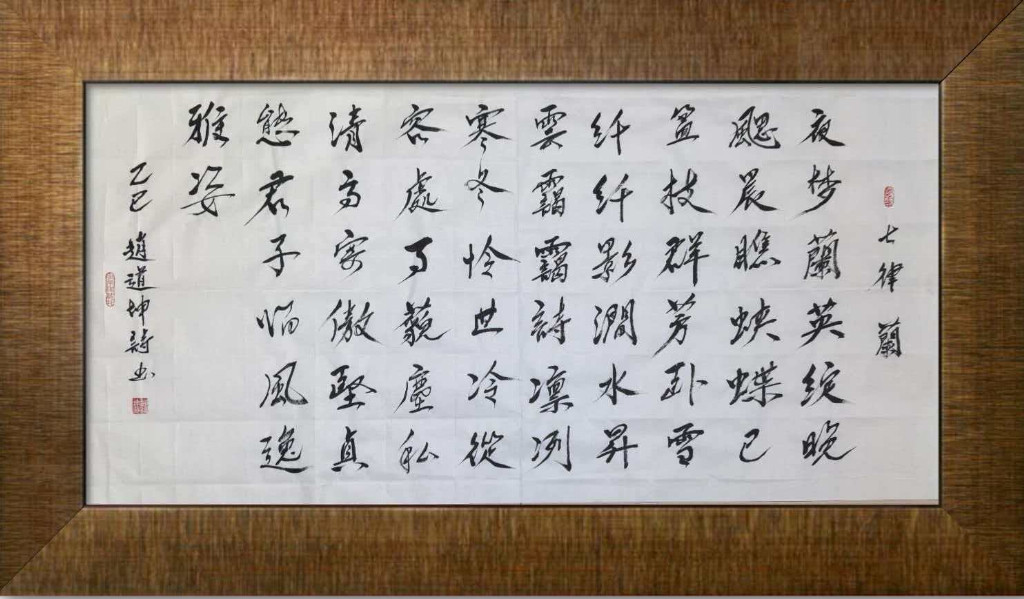 七律 蘭
夜梦蘭英绽晚
颸晨瞧蛱蝶已
盈枝群芳卧雪
纤纤影澗水昇
雲靄靄詩凛冽
寒冬怜世冷從
容處事藐塵私
清高寄傲堅真
態君子临風逸
雅姿
乙巳 趙道坤詩书